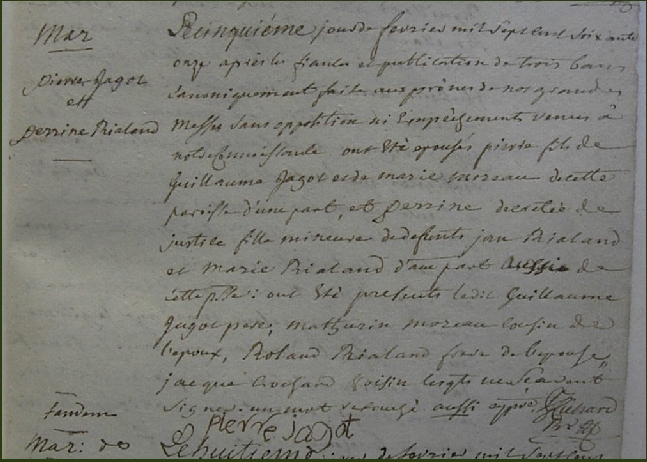 Mar
pierre Jagot
et
perrine Rialand
Le cinquiéme jour de fevrier mil sept cent soixante
onze après les fiances et publication de trois bans
canoniquement faite aux prônes de nos grandes
Messes sans opposition ni Empêchement venus à
notre connoissance ont été epousés pierre fils de
Guillaume Jagot et de marie moreau de cette
paroisse d'une part, et perrine decretée de
justice fille mineure de defunts jan Rialand
et Marie Rialand d'aure part de
cette psse: ont été presents ledit Guillaume
Jagot pere, mathurin moreau cousin de
l'epoux, Roland Rialand frere de l'epouse,
jacque voisin lesqts ne scavent
signer. un mot aussi approuvé
pierre Jagot
Mar: de
Le huitieme jour de fevrier mil sept cent